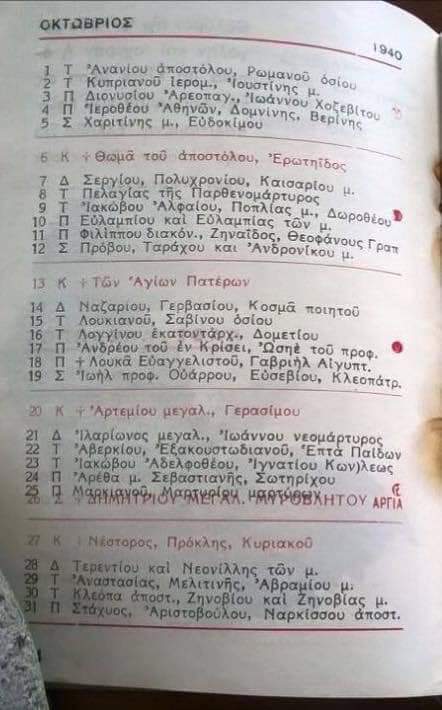 ΟΚΤΩΒΡΙΟΣ
1940
1 Τ Ἀνανίου ἀποστόλου, Ρωμανοῦ ὁσίου
2 Τ Κυπριανοῦ ἱερομ., Ἰουστίνης μ.
3 Π Διονυσίου Ἀρεοπαγ., Ἰωάννου Χοζεβίτου
4 Π Ἱεροθέου Ἀθηνῶν, Δομνίνης, Βερίνης
5 Σ Χαριτίνης μ., Εὐδοκίμου
6 Κ +Θωμᾶ τοῦ ἀποστόλου, Ἐρωτηΐδος
7 Δ Σεργίου, Πολυχρονίου, Καισαρίου μ.
8 Τ Πελαγίας τῆς Παρθενομάρτυρος
9 Τ Ἰακώβου Ἀλφαίου, Ποπλίας μ., Δωροθέου
10 Π Εὐλαμπίου καὶ Εὐλαμπίας τῶν μ.
11 Π Φιλίππου διακόν., Ζηναΐδος, Θεοφάνους Γραπ
12 Σ Πρόβου, Ταράχου και Ἀνδρονίκου μ.
13 Κ +Τῶν Ἁγίων Πατέρων
14 Δ Ναζαρίου, Γερβασίου, Κοσμᾶ ποιητοῦ
15 Τ Λουκιανοῦ, Σαβίνου ὁσίου
16 Τ Λογγίνου ἑκατοντάρχ., Δομετίου
17 Π Ἀνδρέου τοῦ ἐν Κρίσει, Ὡσηὲ τοῦ προφ.
18 Π +Λουκᾶ Εὐαγγελιστοῦ, Γαβριὴλ Αἰγυπτ.
19 Σ Ἰωὴλ προφ. Οὐάρρου, Εὐσεβίου, Κλεοπάτρ.
20 Κ +Ἀρτεμίου μεγαλ., Γερασίμου
21 Δ Ἱλαρίωνος μεγαλ., Ἰωάννου νεομάρτυρος
22 Τ Ἀβερκίου, Ἐξακουστωδιανοῦ, Ἑπτὰ Παίδων
23 Τ Ἰακώβου Ἀδελφοθέου, Ἰγνατίου Κων)λεως
24 Π Ἀρέθα μ. Σεβαστιανῆς, Σωτηρίχου
25 Π Μαρκιανοῦ, Μαρτυρίου μαρτύρων
26 Σ +ΔΗΜΗΤΡΙΟΥ ΜΕΓΑΛ. ΜΥΡΟΒΛΗΤΟΥ ΑΡΓΙΑ
27 Κ +Νέστορος, Πρόκλης, Κυριακοῦ
28 Δ Τερεντίου καὶ Νεονίλλης τῶν μ.
29 Τ Ἀναστασίας, Μελιτινῆς, Ἀβραμίου μ.
30 Τ Κλεόπα ἀποστ., Ζηνοβίου καὶ Ζηνοβίας μ.
31 Π Στάχυος, Ἀριστοβούλου, Ναρκίσσου ἀποστ.